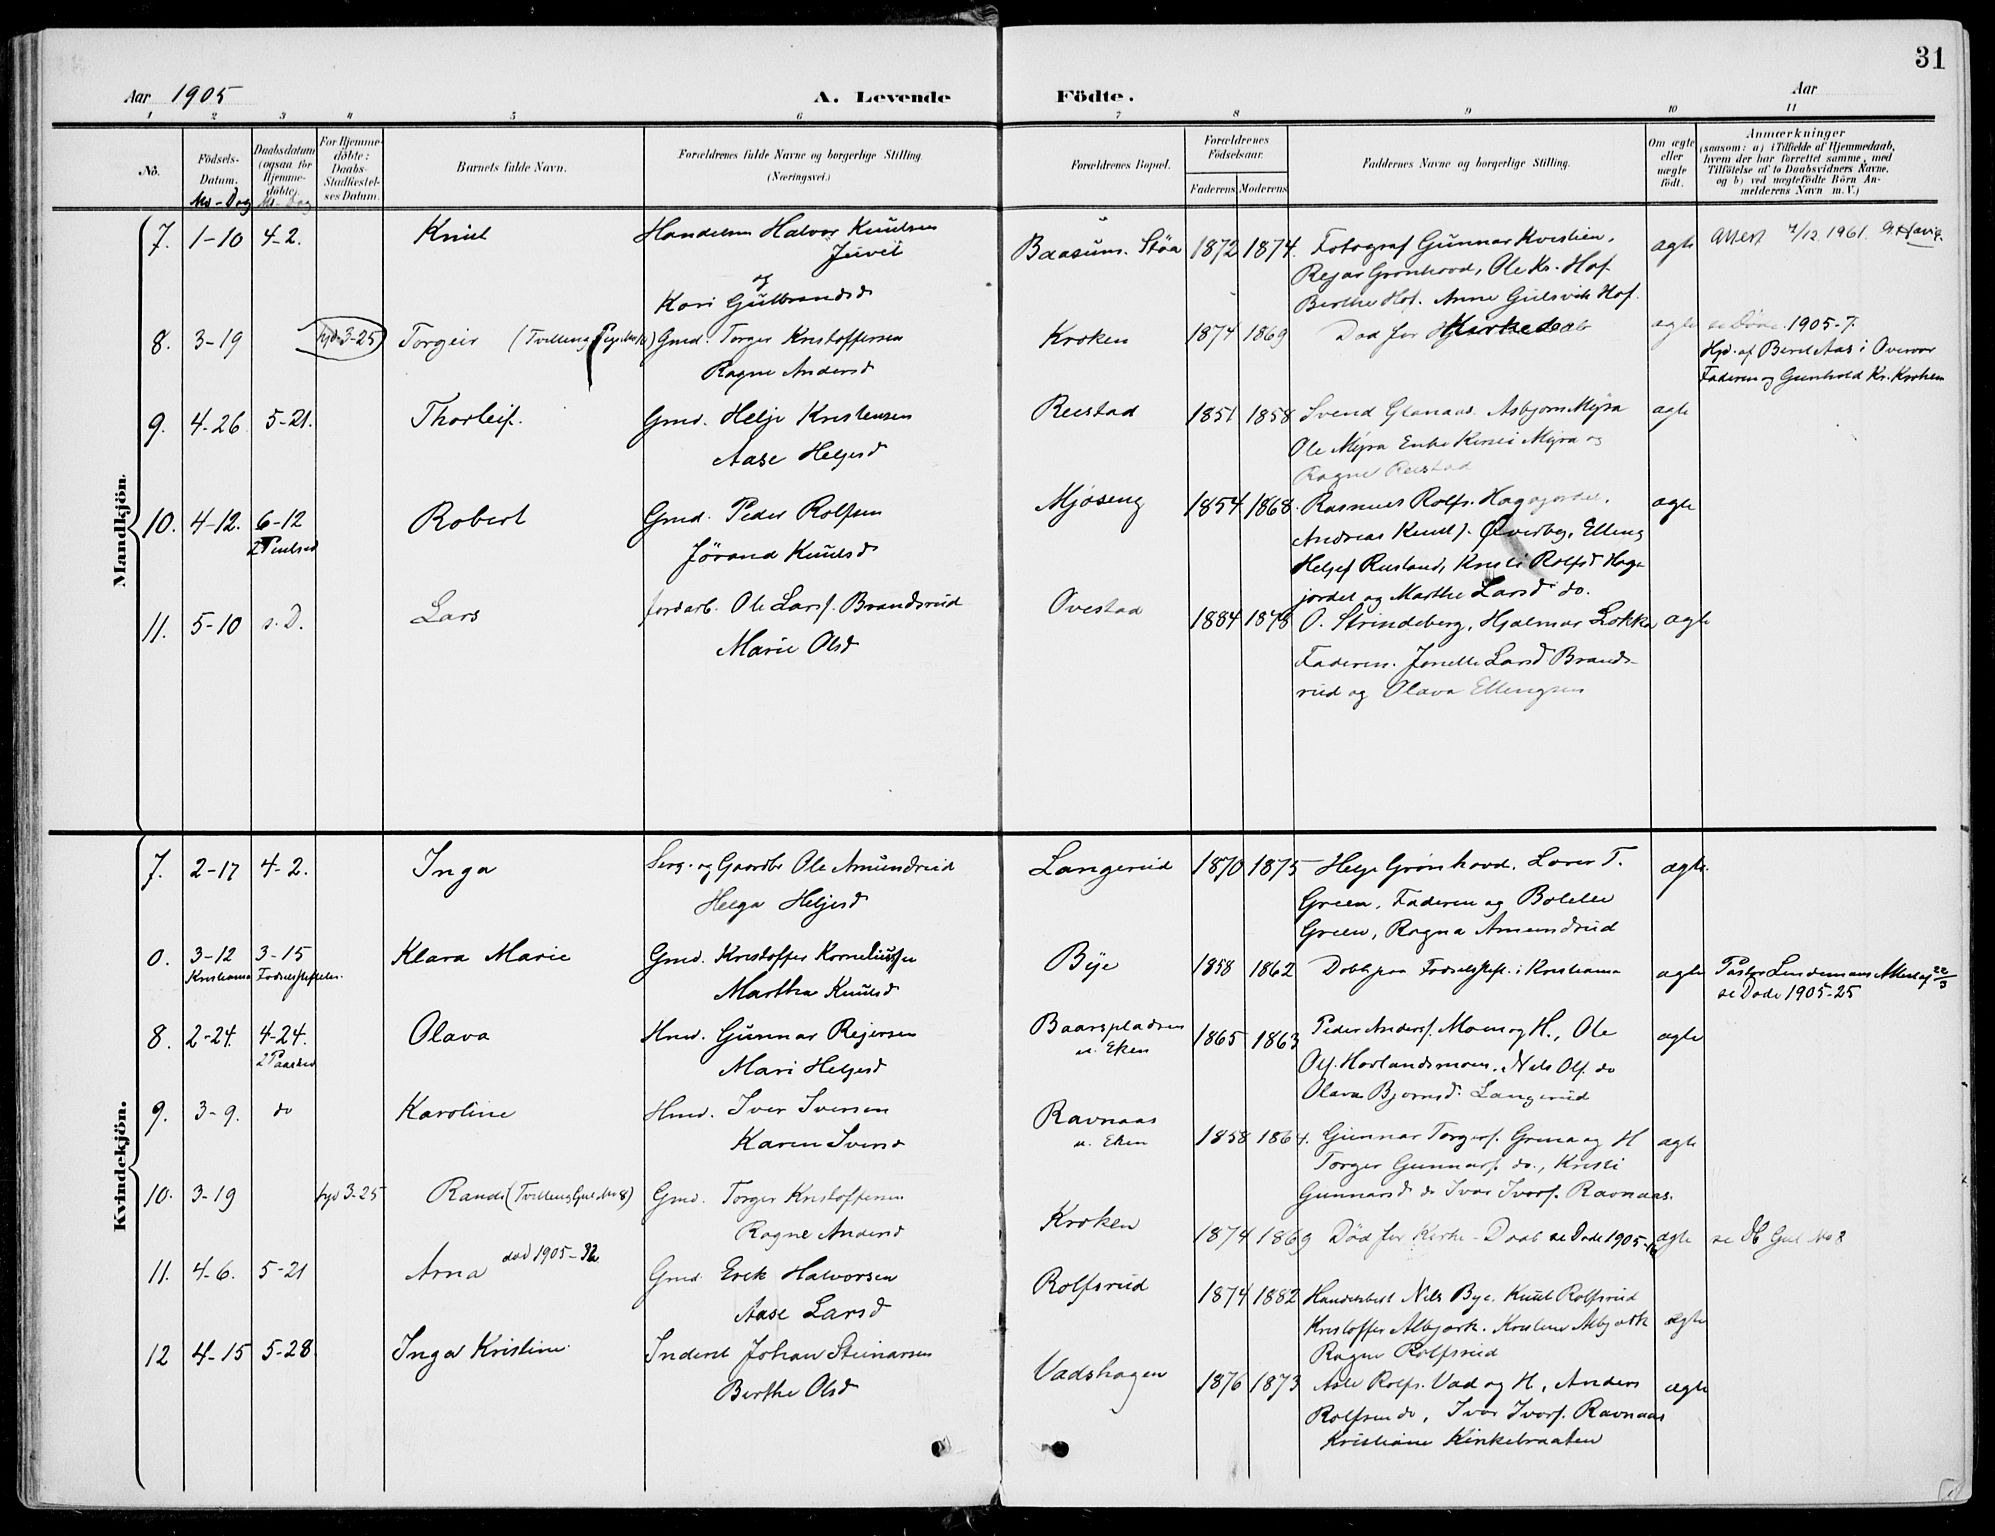 31
Aar 1905
A. Levende Födte.
Aar
1 2 3 4 5 6 7 8 9 10 11
No.
Födsels-Datum.
Md - Dag
Daabsdatum (ogsaa for Hjemme-döbte).
Md. Dag
For Hjemme-döbte: Daabs-Stadfæstel-ses Datum.
Barnets fulde Navn.
Forældrenes fulde Navne og borgerlige Stilling.
(Næringsvei.)
Forældrenes Bopæl.
Forældrenes Födselsaar.
Faderens Moderens
Faddernes Navne og borgerlige Stilling.
Om ægte eller uægte födt.
Anmærkninger
(saasom: a) i Tilfælde af Hjemmedaab, hvem der har forrettet samme, med Tilföielse af to Daabsvidners Navne, og b) ved uægtefödte Börn An-melderens Navn m. V.)
Mandkjön.
7. 1-10 4-2. Knut Handelsm Halvor Knutsen
Juvet
og
Kari Gulbrandsd
Baasum. Støa 1872 1874. Fotograf Gunnar Kvistlien,
Rejar Grønhovd, Ole Kr. Hof
Berthe Hof. Anne Gulsvik Hof.
ægte Attest 4/12 1961.
8. 3-19 hjd 3-25 Torgeir (Tvilling Pige No 10) Gmd. Torger Kristoffersen
Ragne Andersd
Kroken 1874 1869 Død før Kirkedaab ægte se Døde 1905-7.
Hjd. af Beret Aas i
Faderen og Gunhild Kr. Kroken
9. 4-26 5-21. Thorleif. Gmd. Helje Kristensen
Aase Heljesd
Rustad 1851 1858 Svend Glanaas. Asbjørn Myra
Ole Myra Enke Kirsti Myra og
Ragne Rustad
ægte
10. 4-12. 6-12
2 Pintsed
Robert Gmd. Peder Rolfsen
Jørand Knutsd
Mjøseng 1854 1868. Rasmus Rolfs. Hagajordet,
Andreas Knuts. Øverby, Elling
Heljes Rustand, Kristi Rolfsd Haga
jordet og Marthe Larsd do.
ægte
11. 5-10 s. D. Lars Jordarb. Ole Larss. Brandsrud
Marie Olsd
Ovestad 1884 1878 O. Strindeberg, Hjalmar Løkka
Faderen. Jonette Larsd Brands-
rud og Olava Ellingsen
ægte
Kvindekjön.
7. 2-17 4-2. Inga Serg. og Gaardbr Ole Amundrud
Helga Heljesd
Langerud 1870 1875 Helge Grønhovd, Lærer T.
Green, Faderen og Bolette
Green, Ragna Amundrud
ægte.
0. 3-12 3-15
Kristiania Fødselsstiftelse.
Klara Marie Gmd. Kristoffer Korneliussen
Martha Knutsd
Bye 1858 1862 Døbt paa Fødselsstift. i Kristiania ægte Pastor Lindemans Attest af 22/3
se Døde 1905-25
8. 2-24. 4-24.
2 Paasked
Olava Hmd. Gunnar Rejersen
Mari Heljesd
Baarspladsen
u. Eken
1865 1863 Peder Anderss. Moen og H., Ole
Ols. Hovlandsmoen. Nels Ols. do
Olava Bjørnsd. Langerud
ægte
9. 3-9. do Karoline Hmd. Iver Iversen
Karen Iversd
Ravnaas
u. Eken
1858 1864. Gunnar Torgers. Grena og H
Torger Gunnars. do., Kristi
Gunnarsd do Ivar Ivars. Ravnaas.
ægte
10. 3-19 hjd 3-25 Randi (Tvilling Gut No 8) Gmd. Torger Kristoffersen
Ragne Andersd
Kroken 1874 1869 Død før Kirke-Daab se Døde 1905- ægte se Db Gut No 8
11. 4-6. 5-21 Arna død 1905-32 Gmd. Erik Halvorsen
Aase Larsd
Rolfsrud 1874 1882 Handelsbest Nils Bye. Knut Rolfsrud
Kristoffer Albjørk. Kristine Albjørk
Ragne Rolfsrud
ægte
12 4-15 5-28. Inga Kristine. Inderst Johan Steinarsen
Berthe Olsd
Vadshagen 1876 1873 Asle Rolfs. Vad og H, Anders
Rolfsen do, Ivar Ivars. Ravnaas
Kristiane Kinkelraaten
ægte